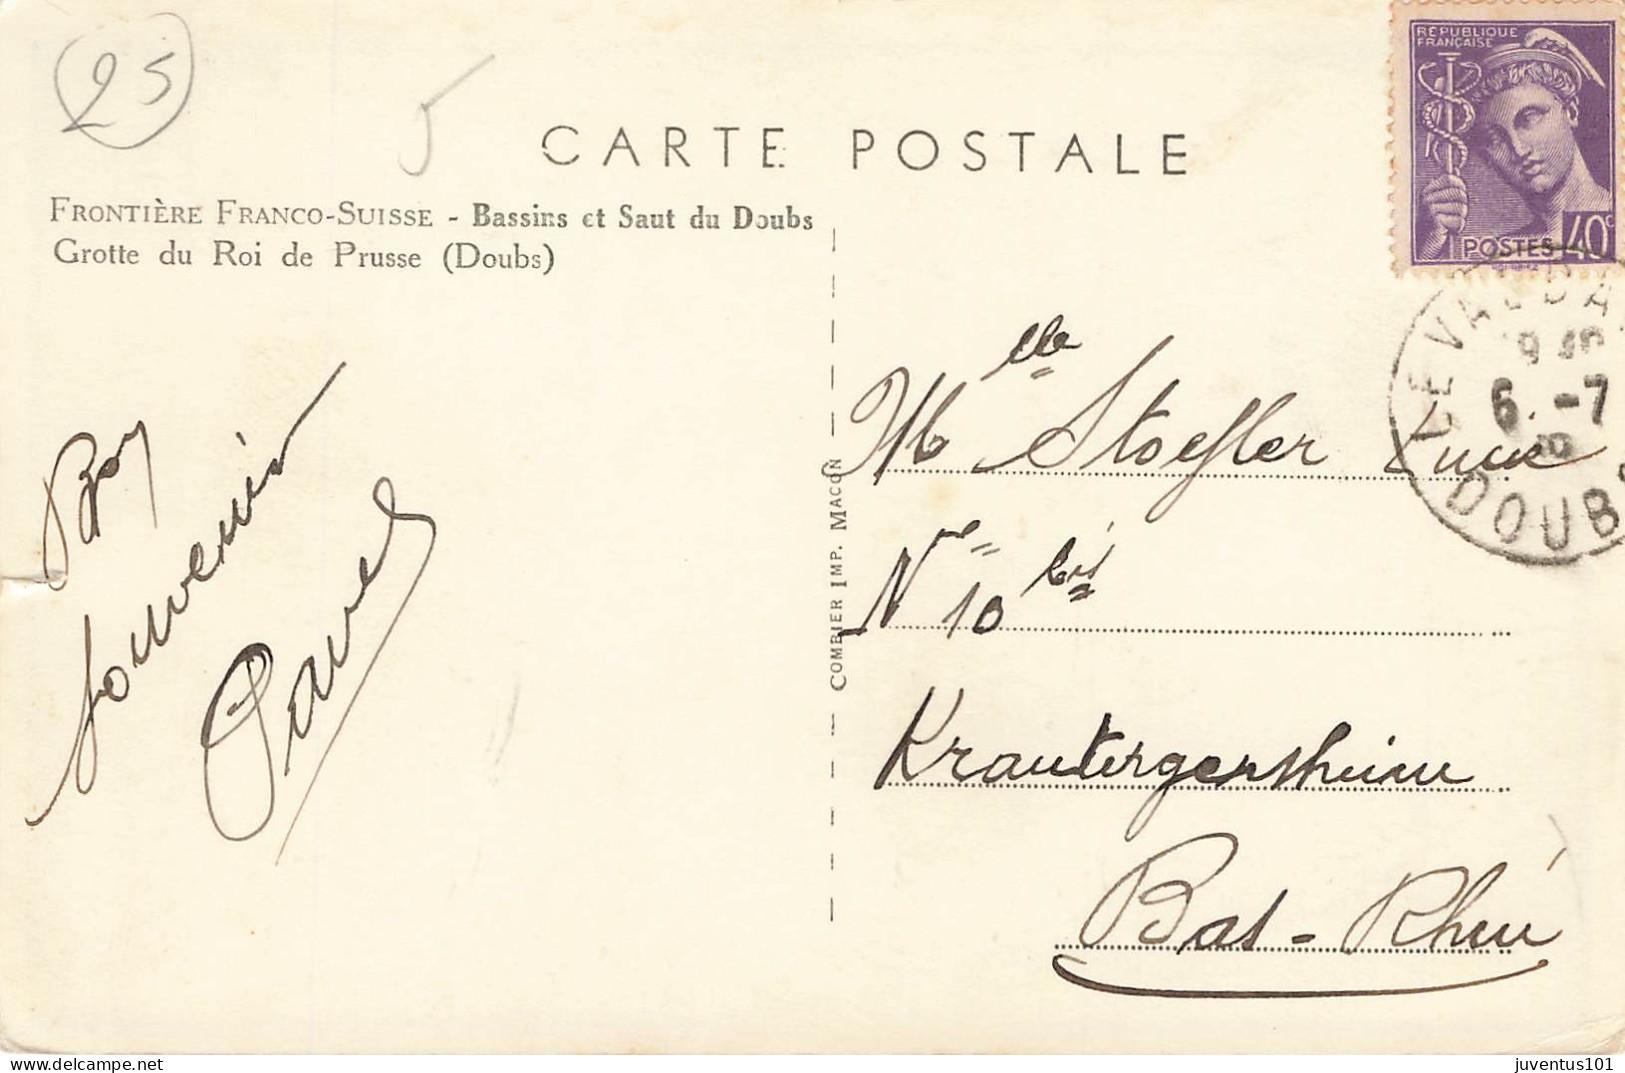 25
5
CARTE POSTALE
RÉPUBLIQUE
FRANÇAISE
POSTES 40c
FRONTIÈRE FRANCO-SUISSE - Bassins et Saut du Doubs
Grotte du Roi de Prusse (Doubs)
LE VALDA
19 40
6 -7
DOUBS
Bon
souvenir
COMBIER IMP. MACON
Mlle Stoefler Lucie
N 10 bis
Krautergersheim
Bas-Rhin
delcampe.net
juventus101